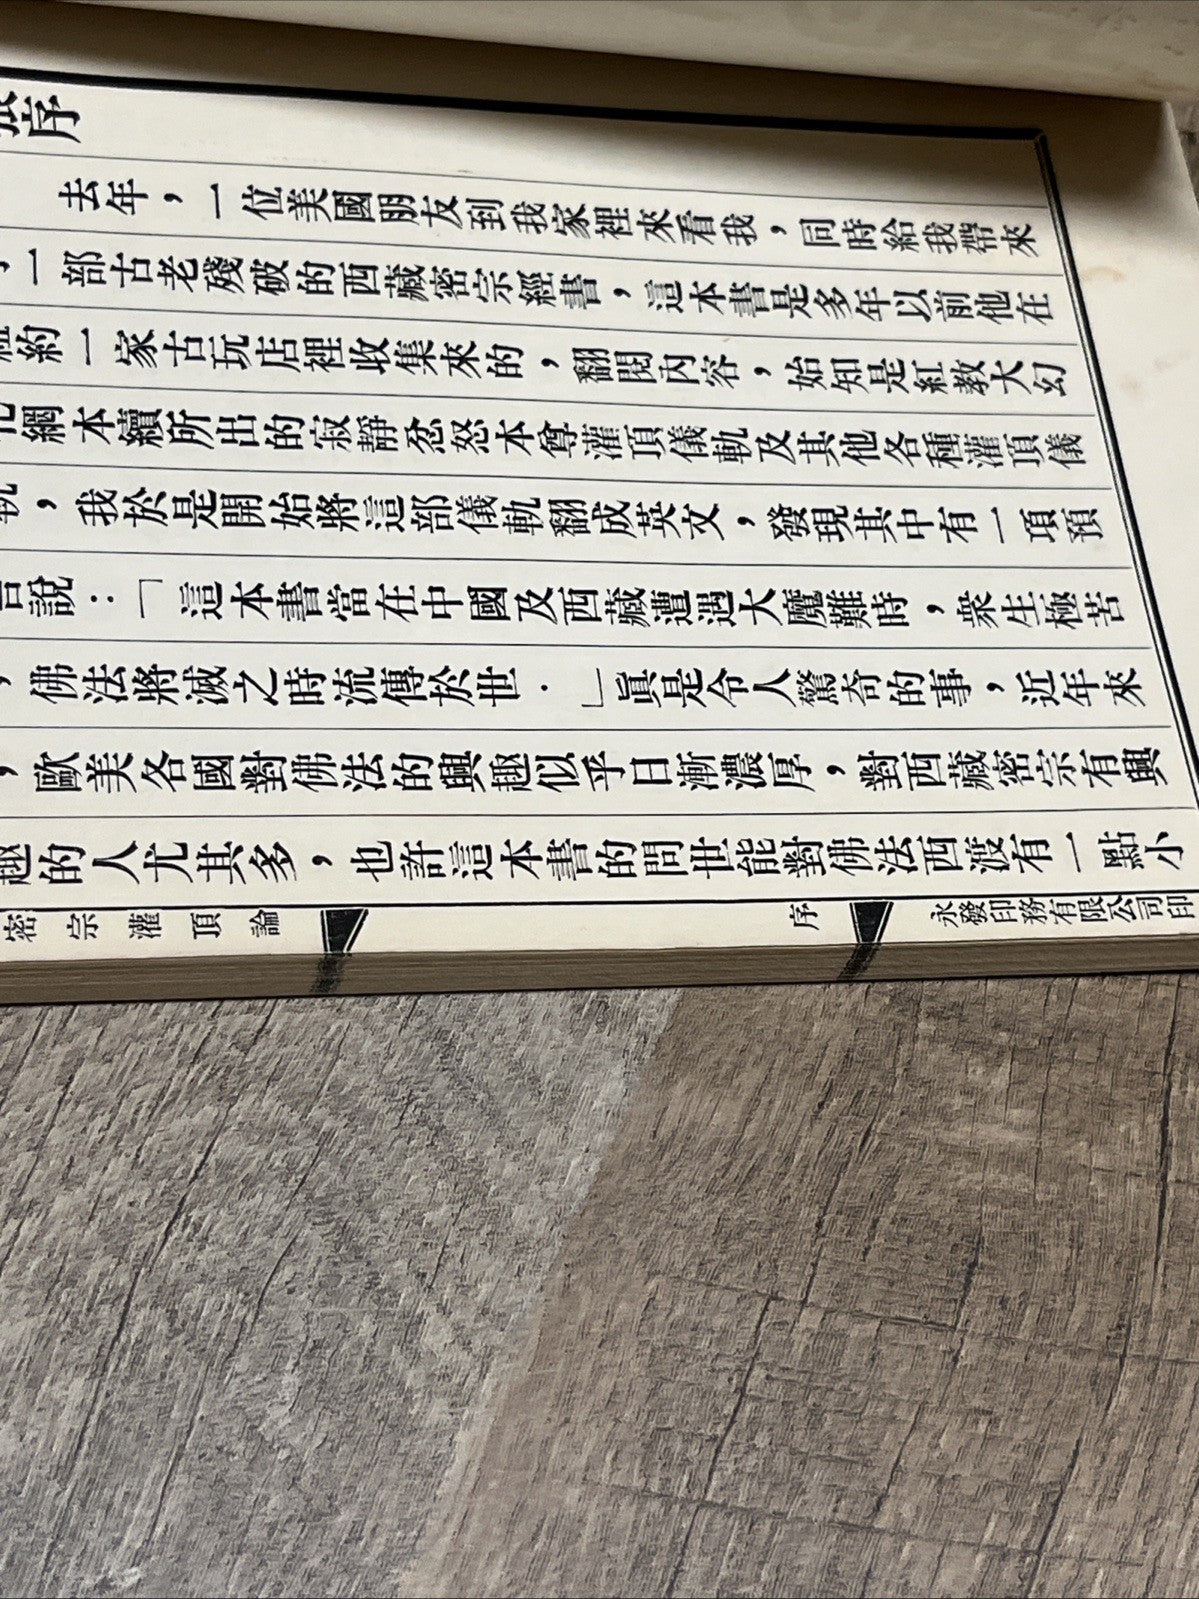 序
去年，一位美國朋友到我家裡來看我，同時給我帶來
一部古老殘破的西藏密宗經書，這本書是多年以前他在
紐約一家古玩店裡收集來的，翻閱內容，始知是紅教大幻
化網本續所出的寂靜忿怒本尊灌頂儀軌及其他各種灌頂儀
軌，我於是開始將這部儀軌翻成英文，發現其中有一項預
言說：「這本書當在中國及西藏遭遇大魔難時，衆生極苦
，佛法將滅之時流傳於世．」眞是令人驚奇的事，近年來
，歐美各國對佛法的興趣似乎日漸濃厚，對西藏密宗有興
趣的人尤其多，也許這本書的問世能對佛法西渡有一點小
密宗灌頂論
序
永發印務有限公司印